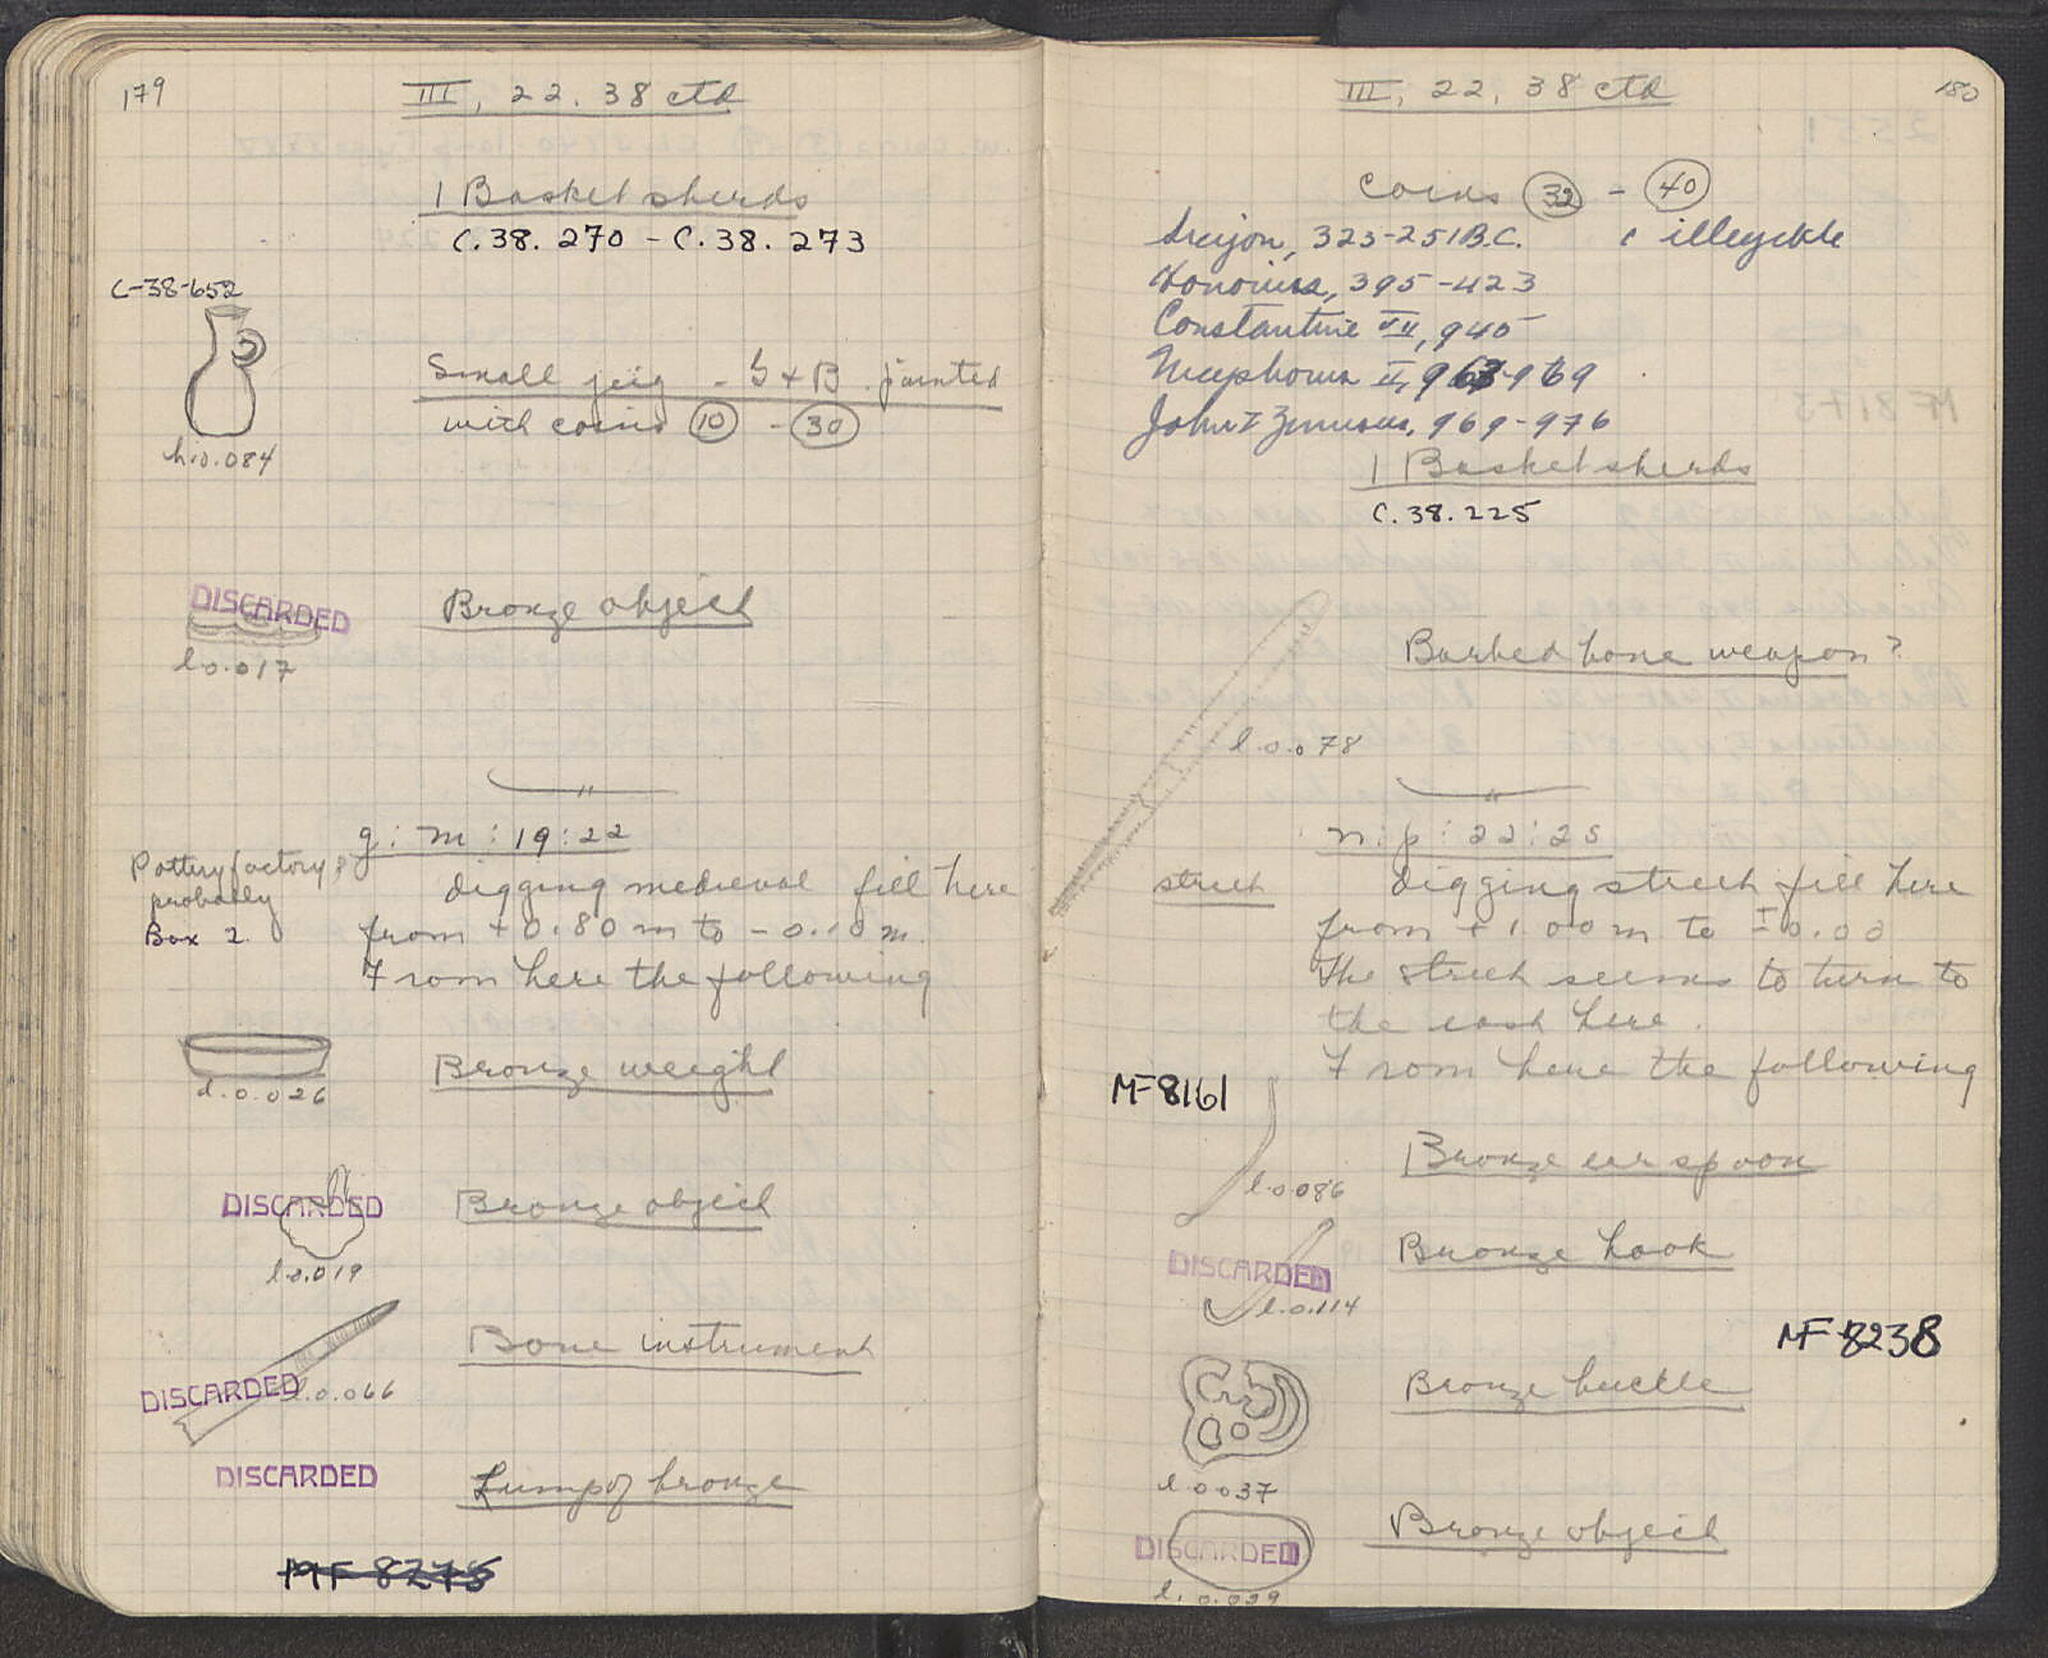 179
III, 22. 38 ctd
1 Basket sherds
C.38. 270 - C.38. 273
C-38-652
Small jug - G + B painted
with coins 10 - 30
h.0.084
DISCARDED
Bronze object
l 0.017
"
g: m: 19:22
Pottery factory?
probably
Box 2.
digging medieval fill here
from +0.80 m to -0.10 m.
From here the following
Bronze weight
d.0.026
DISCARDED
Bronze object
l 0.019
Bone instrument
DISCARDED
l.0.066
DISCARDED
Lump of bronze
MF 8275
180
III, 22, 38 ctd
Coins 32 - 40
323-251 B.C.
1 illegible
Honorius, 395-423
Constantine VII, 945
Nicephorus II, 963-969
John I Zimisces, 969-976
1 Basket sherds
C.38.225
Barbed bone weapon?
l.0.078
"
n: p: 22:25
street
digging street fill here
from +1.00 m to ±0.00
The street seems to turn to
the east here.
From here the following
MF-8161
Bronze ear spoon
l.0.086
Bronze hook
DISCARDED
l.0.114
MF 8238
Bronze buckle
l.0.037
Bronze object
DISCARDED
l. 0.029